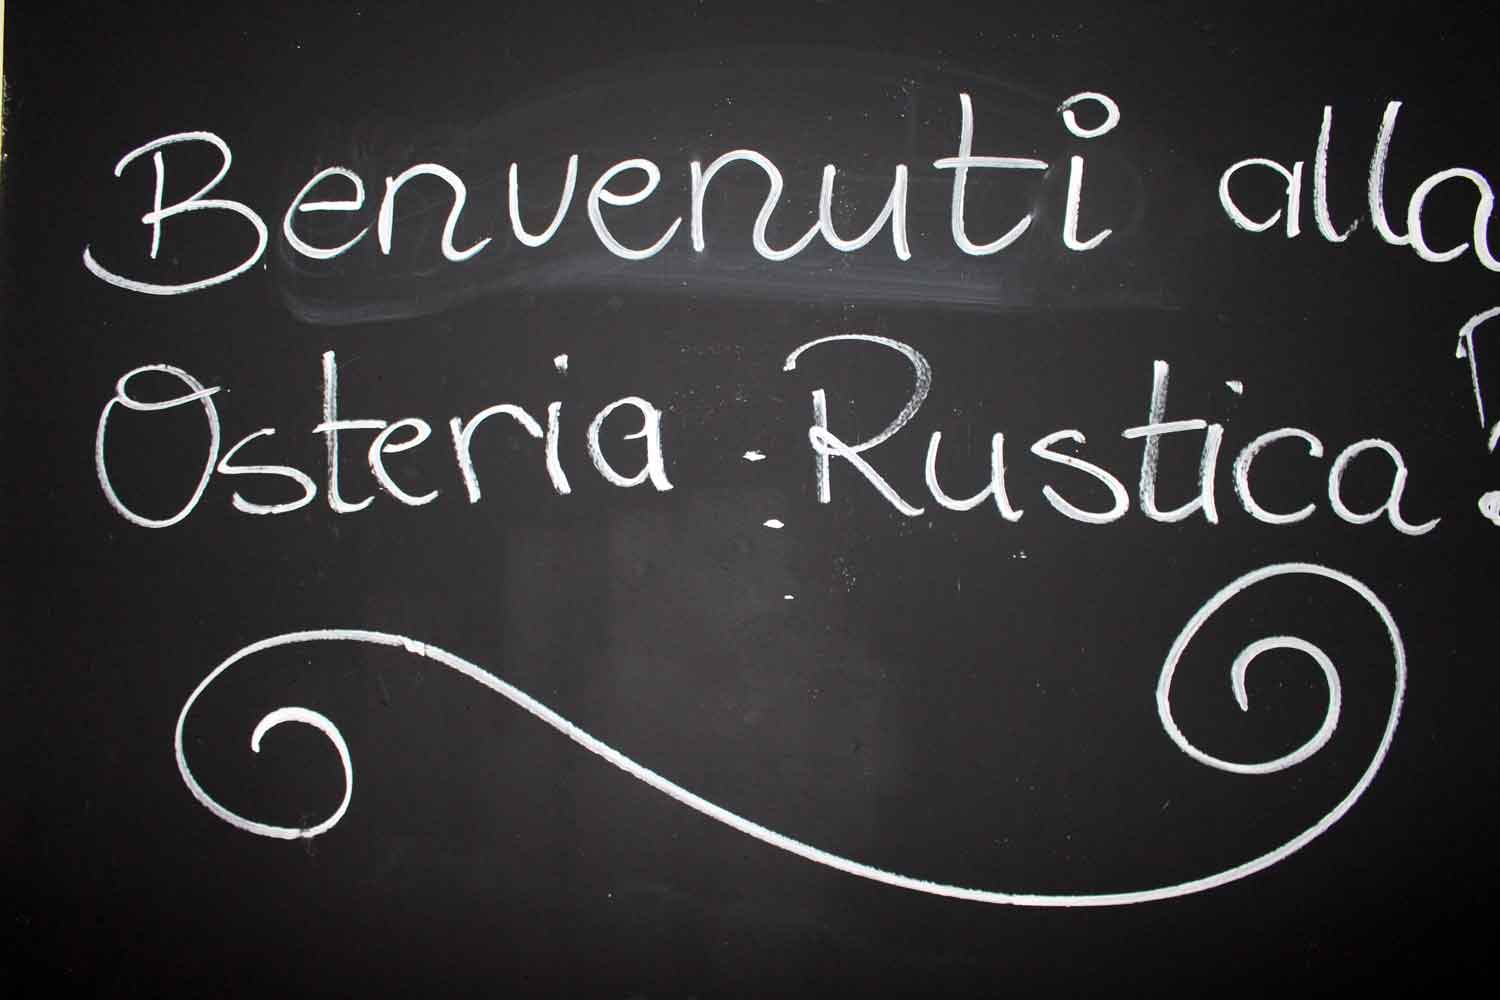 Benvenuti alla
Osteria Rustica!